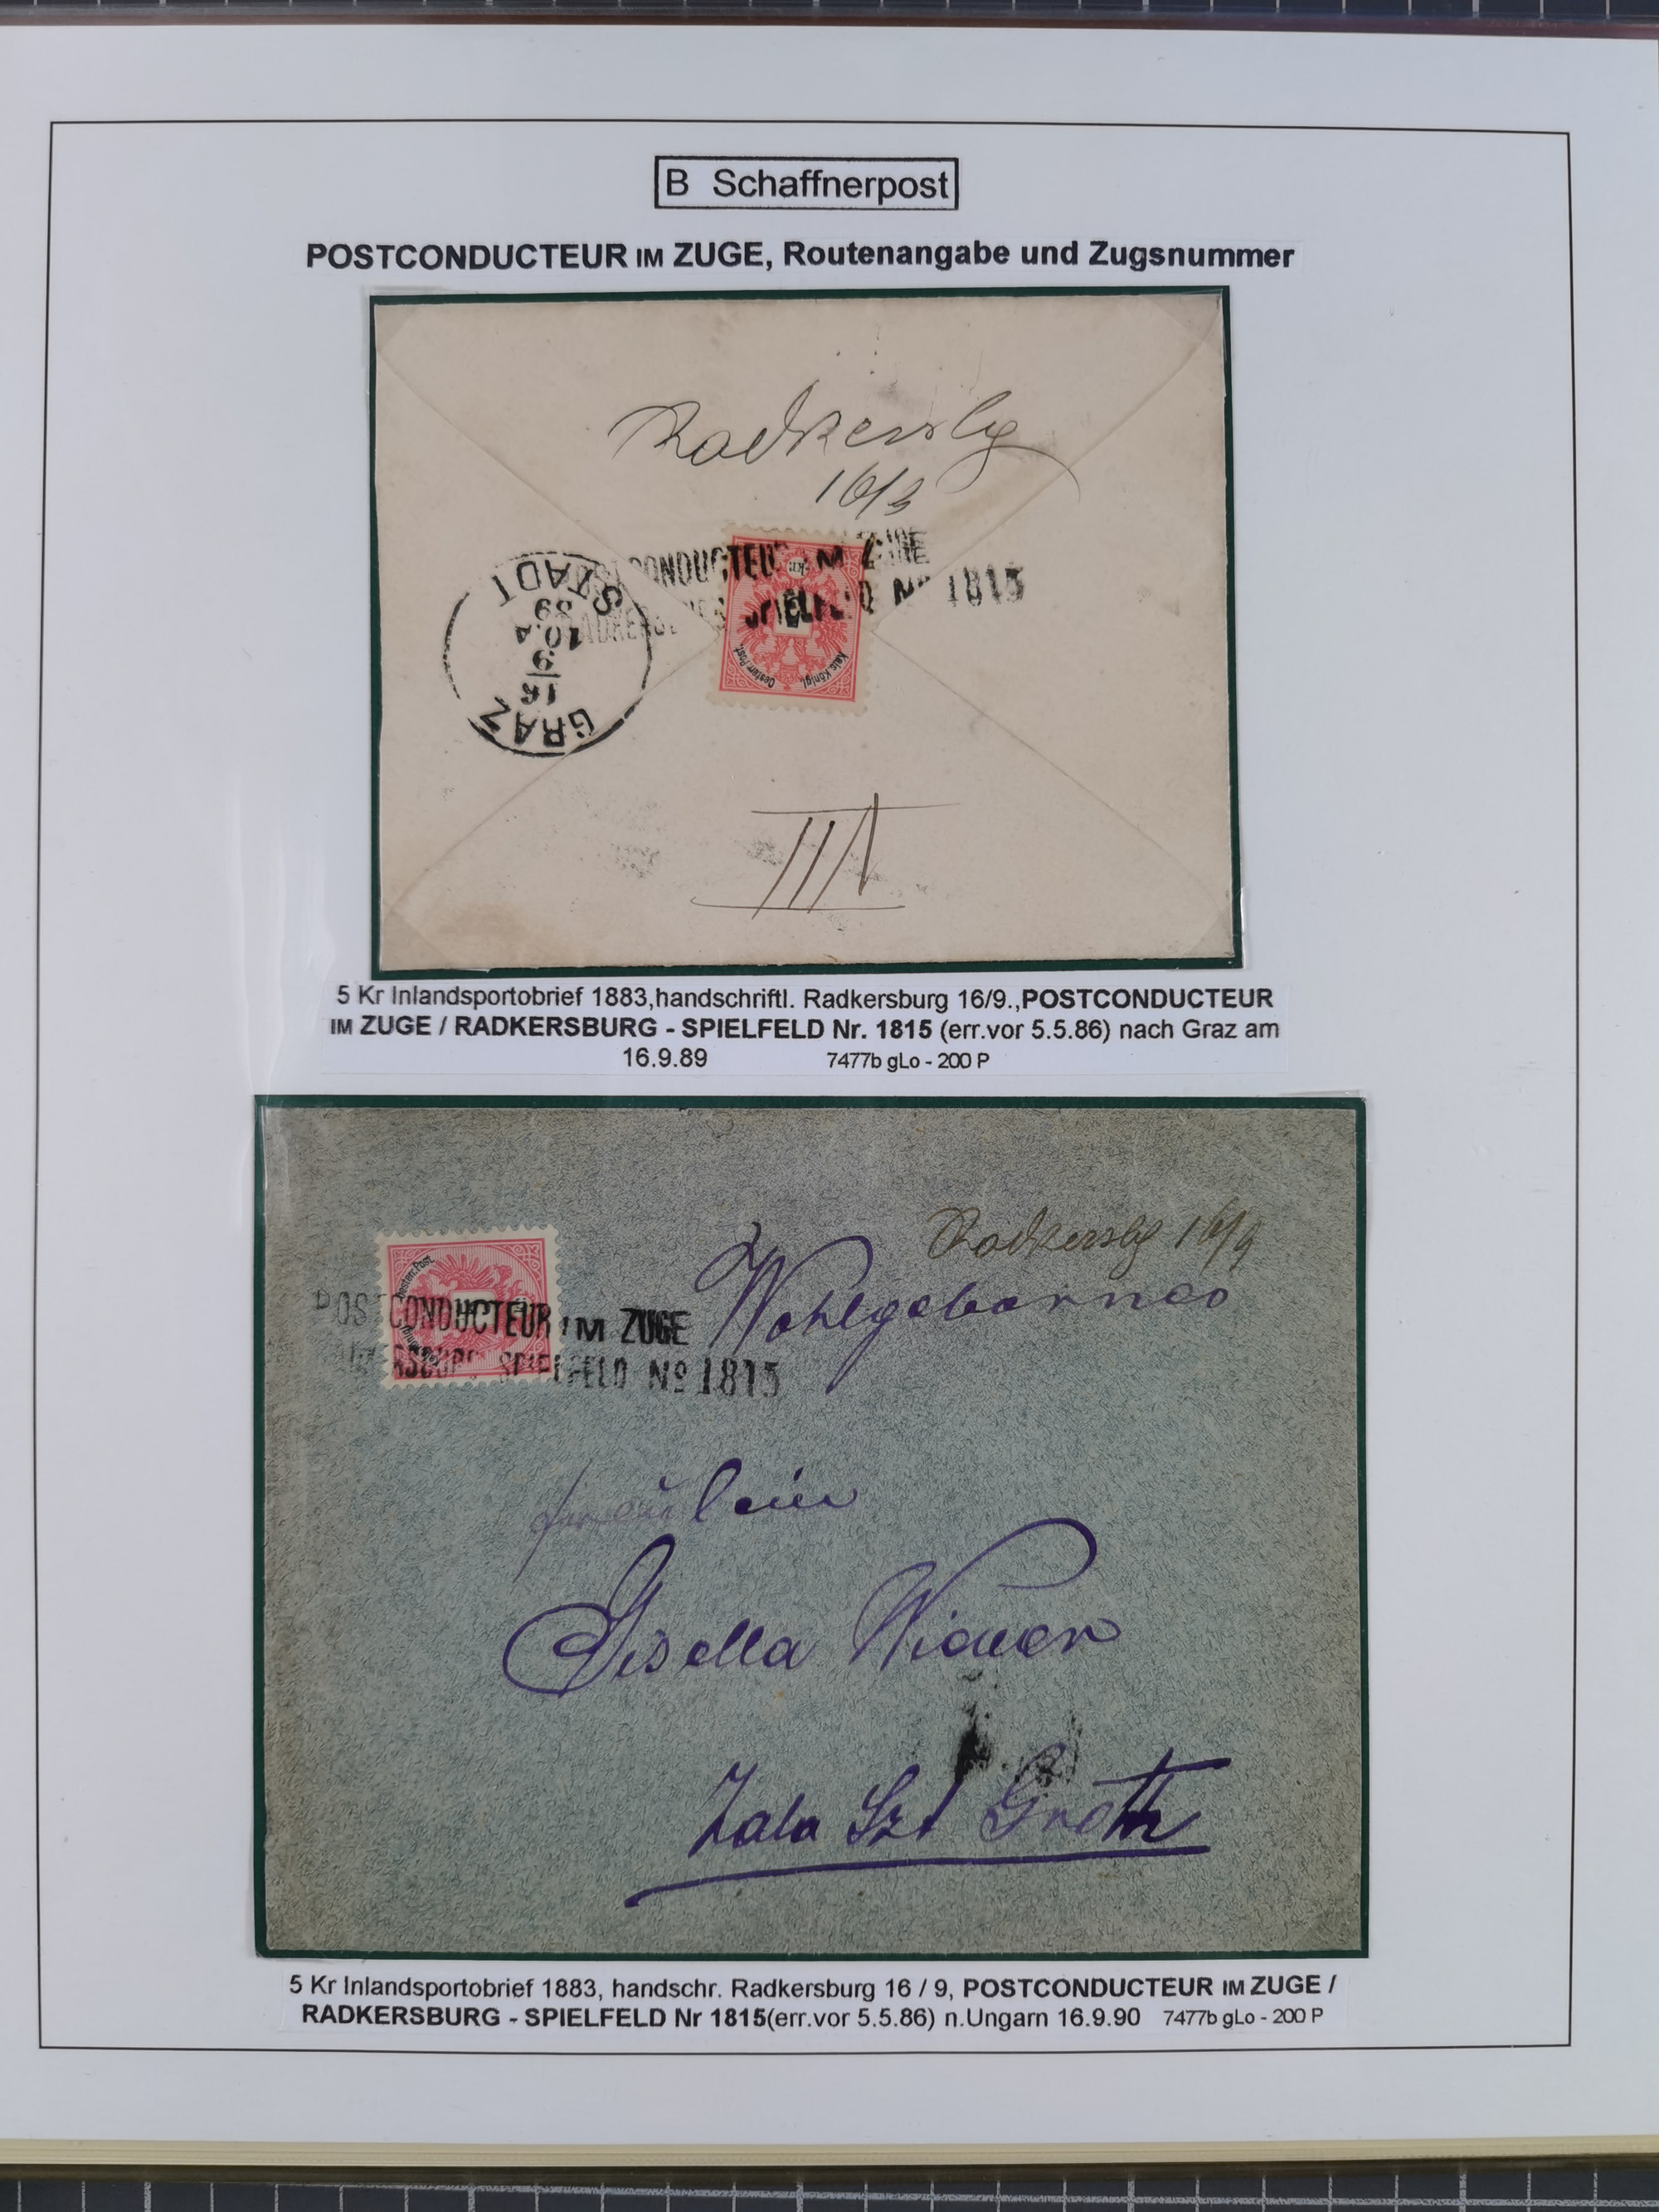 B Schaffnerpost
POSTCONDUCTEUR IM ZUGE, Routenangabe und Zugsnummer
Radkersbg
16/9
CONDUCTEUR IM ZUGE
SPIELFELD No 1815
GRAZ
16
9
10.A
89
STADT
kr.
Kais. Königl.
Oesterr. Post.
III
5 Kr Inlandsportobrief 1883,handschriftl. Radkersburg 16/9.,POSTCONDUCTEUR
IM ZUGE / RADKERSBURG - SPIELFELD Nr. 1815 (err.vor 5.5.86) nach Graz am
16.9.89 7477b gLo - 200 P
Radkersbg 16/9
Oesterr. Post.
POSTCONDUCTEUR IM ZUGE
SPIELFELD No 1815
Wohlgeboren
Fräulein
Gisella Wiener
Zala Szt Groth
5 Kr Inlandsportobrief 1883, handschr. Radkersburg 16 / 9, POSTCONDUCTEUR IM ZUGE /
RADKERSBURG - SPIELFELD Nr 1815(err.vor 5.5.86) n.Ungarn 16.9.90 7477b gLo - 200 P